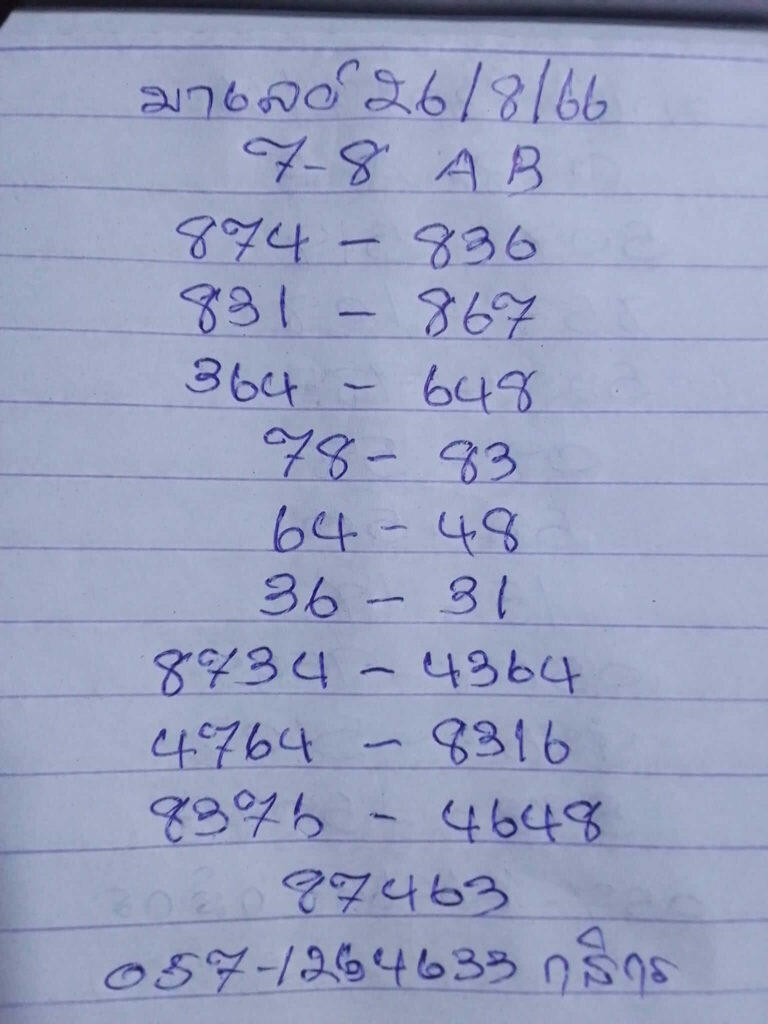 มาเลย์ 26/8/66
7-8 A B
874 - 836
831 - 867
364 - 648
78 - 83
64 - 48
36 - 31
8734 - 4364
4764 - 8316
8376 - 4648
87463